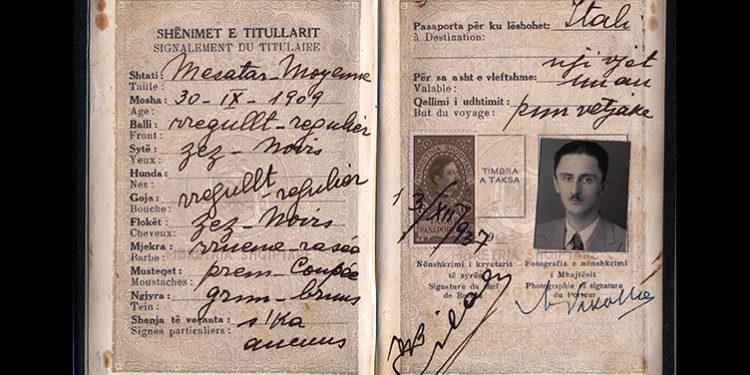 SHËNIMET E TITULLARIT
SIGNALEMENT DU TITULAIRE
Shtati: Mesatar - Moyenne
Taille:
Mosha: 30-IX-1909
Age:
Balli: rregullt - regulier
Front:
Sytë: zez - Noirs
Yeux:
Hunda:
Nez:
Goja: rregullt - regulier
Bouche:
Flokët: zez - Noirs
Cheveux:
Mjekra: rruene - rasée
Barbe:
Musteqet: prem - Coupée
Moustaches:
Ngjyra: grun - bruns
Tein:
Shenja të veçanta: s'ka
Signes particuliers: aucuns
Pasaporta për ku lëshohet: Itali
à Destination:
nji vjet
Për sa asht e vlefshme: un an
Valable:
Qellimi i udhtimit: pun vetjake
But du voyage:
TIMBRA
A TAKSA
13/XII/937
Nënshkrimi i kryetarit
të zyrës
Signature du chef
de Bureau
Fotografia e nënshkrimi
i Mbajtësit
Photographie et signature
du Porteur